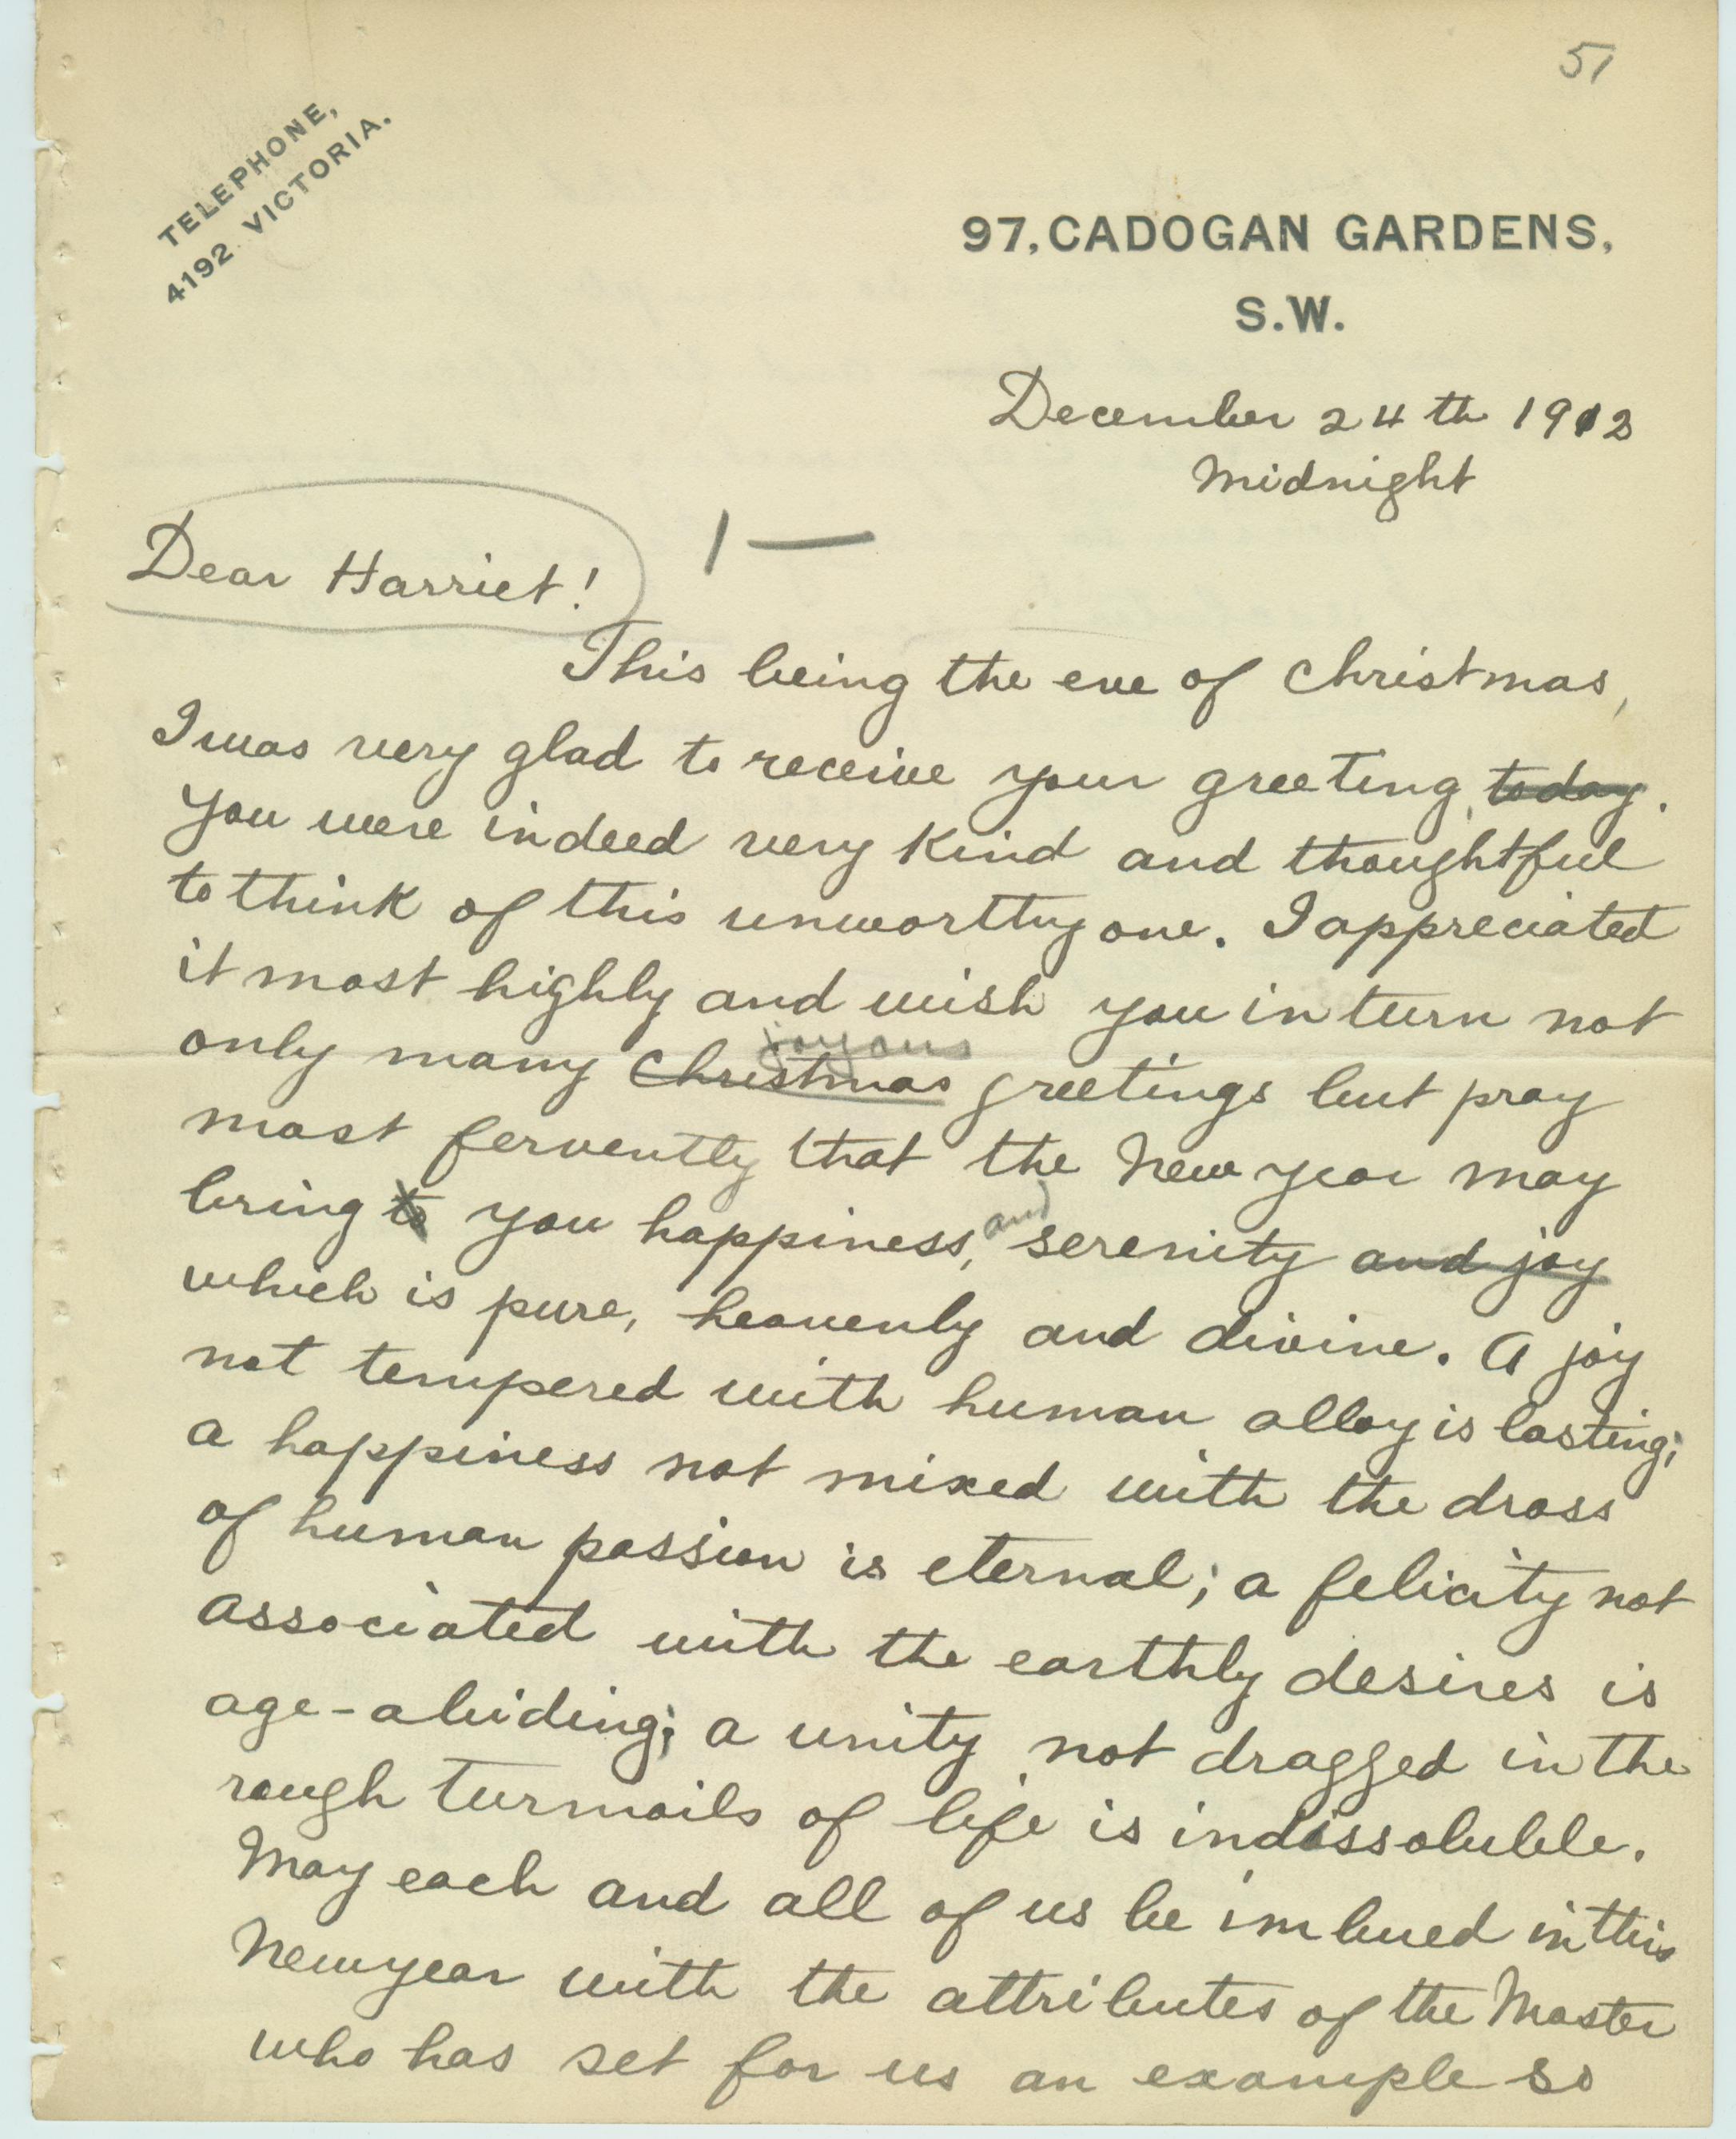 51
TELEPHONE,
4192 VICTORIA.
97, CADOGAN GARDENS,
S.W.
December 24th 1912
Midnight
Dear Harriet! 1—
This being the eve of Christmas,
I was very glad to receive your greeting, today.
You were indeed very kind and thoughtful
to think of this unworthy one. I appreciated
it most highly and wish you in turn not
joyous
only many Christmas greetings but pray
most fervently that the New year may
bring to you happiness, and serenity and joy
which is pure, heavenly and divine. A joy
not tempered with human alloy is lasting;
a happiness not mixed with the dross
of human passion is eternal; a felicity not
associated with the earthly desires is
age-abiding; a unity not dragged in the
rough turmoils of life is indissoluble.
May each and all of us be imbued in this
New year with the attributes of the Master
who has set for us an example so